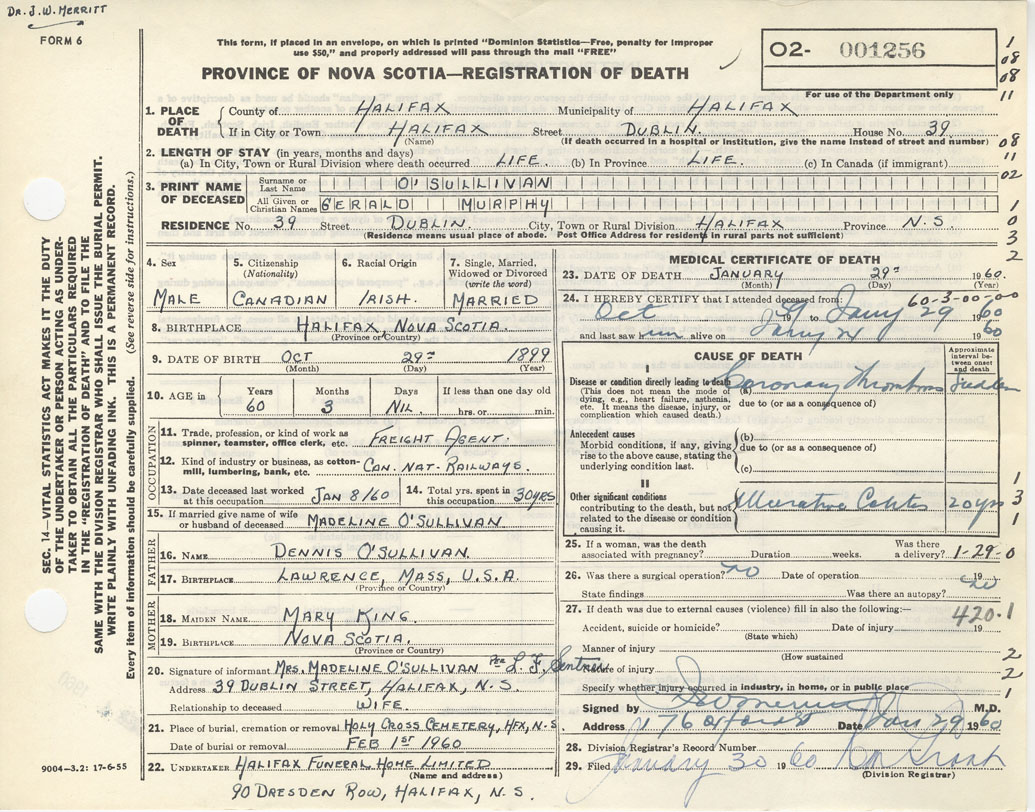 DR. J. W. MERRITT
FORM 6
This form, if placed in an envelope, on which is printed "Dominion Statistics—Free, penalty for improper
use $50," and properly addressed will pass through the mail "FREE"
PROVINCE OF NOVA SCOTIA—REGISTRATION OF DEATH
O2- 001256
For use of the Department only
1
08
08
11
08
11
02
1
0
3
2
SEC. 14—VITAL STATISTICS ACT MAKES IT THE DUTY
OF THE UNDERTAKER OR PERSON ACTING AS UNDER-
TAKER TO OBTAIN ALL THE PARTICULARS REQUIRED
IN THE "REGISTRATION OF DEATH" AND TO FILE THE
SAME WITH THE DIVISION REGISTRAR WHO SHALL ISSUE THE BURIAL PERMIT.
WRITE PLAINLY WITH UNFADING INK. THIS IS A PERMANENT RECORD.
Every item of information should be carefully supplied. (See reverse side for instructions.)
1. PLACE OF DEATH County of HALIFAX Municipality of HALIFAX
If in City or Town HALIFAX Street DUBLIN. House No. 39.
(Name) (If death occurred in a hospital or institution, give the name instead of street and number)
2. LENGTH OF STAY (in years, months and days)
(a) In City, Town or Rural Division where death occurred LIFE. (b) In Province LIFE. (c) In Canada (if immigrant)
3. PRINT NAME OF DECEASED Surname or Last Name O'SULLIVAN
All Given or Christian Names GERALD MURPHY
RESIDENCE No. 39 Street DUBLIN. City, Town or Rural Division HALIFAX Province N.S
(Residence means usual place of abode. Post Office Address for residents in rural parts not sufficient)
4. Sex 5. Citizenship (Nationality) 6. Racial Origin 7. Single, Married, Widowed or Divorced (write the word)
MALE CANADIAN IRISH. MARRIED
8. BIRTHPLACE HALIFAX, NOVA SCOTIA.
(Province or Country)
9. DATE OF BIRTH OCT 29TH 1899
(Month) (Day) (Year)
10. AGE in Years Months Days If less than one day old
60 3 NIL. hrs. or min.
OCCUPATION
11. Trade, profession, or kind of work as spinner, teamster, office clerk, etc. FREIGHT AGENT.
12. Kind of industry or business, as cotton-mill, lumbering, bank, etc. CAN. NAT. RAILWAYS.
13. Date deceased last worked at this occupation. JAN 8/60 14. Total yrs. spent in this occupation. 30 YRS
15. If married give name of wife or husband of deceased MADELINE O'SULLIVAN
FATHER
16. NAME DENNIS O'SULLIVAN
17. BIRTHPLACE LAWRENCE, MASS, U.S.A.
(Province or Country)
MOTHER
18. MAIDEN NAME MARY KING
19. BIRTHPLACE NOVA SCOTIA.
(Province or Country)
20. Signature of informant MRS. MADELINE O'SULLIVAN Per L. F.
Address 39 DUBLIN STREET, HALIFAX, N.S.
Relationship to deceased WIFE.
21. Place of burial, cremation or removal HOLY CROSS CEMETERY, HFX, N.S
Date of burial or removal FEB 1ST 1960
22. UNDERTAKER HALIFAX FUNERAL HOME LIMITED
(Name and address)
90 DRESDEN ROW, HALIFAX, N.S.
9004—3.2: 17-6-55
MEDICAL CERTIFICATE OF DEATH
23. DATE OF DEATH JANUARY 29TH 1960.
(Month) (Day)
60-3-00-00
24. I HEREBY CERTIFY that I attended deceased from:
Oct 19 to Jany 29 1960
and last saw him alive on Jany 1960
CAUSE OF DEATH
Approximate interval between onset and death
I
Disease or condition directly leading to death (a) Coronary Thrombosis Sudden
(This does not mean the mode of dying, e.g., heart failure, asthenia, etc. It means the disease, injury, or complication which caused death.)
due to (or as a consequence of)
Antecedent causes
Morbid conditions, if any, giving rise to the above cause, stating the underlying condition last.
(b)
due to (or as a consequence of)
(c)
II
Other significant conditions
contributing to the death, but not related to the disease or condition causing it.
Ulcerative Colitis 20 yrs
1
3
1
25. If a woman, was the death associated with pregnancy? Duration weeks. Was there a delivery? 1-29-0
26. Was there a surgical operation? no Date of operation 19
State findings Was there an autopsy? no
27. If death was due to external causes (violence) fill in also the following:—
420.1
Accident, suicide or homicide? Date of injury 19
(State which)
Manner of injury
(How sustained
Nature of injury
Specify whether injury occurred in industry, in home, or in public place
2
2
1
Signed by M.D.
Address 176 Oxford St Date Jan 29 1960
28. Division Registrar's Record Number
29. Filed January 30 1960
(Division Registrar)